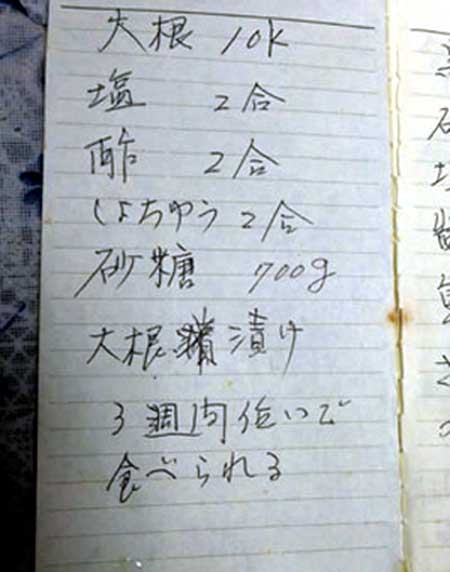 大根 10k
塩 2合
酢 2合
しょちゅう 2合
砂糖 700g
大根 漬け
3週间位いで
食べられる